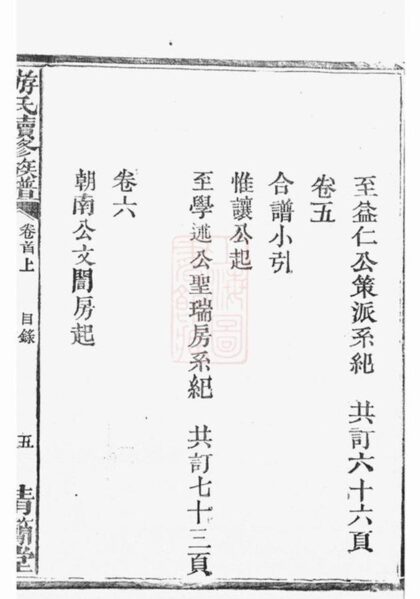 至益仁公策派系紀　共訂六十六頁
卷五
合譜小引
惟讓公起
至學逃公聖瑞房系紀　共訂七十三頁
卷六
朝南公文誾房起
游氏續修族譜
卷首上
目錄
五